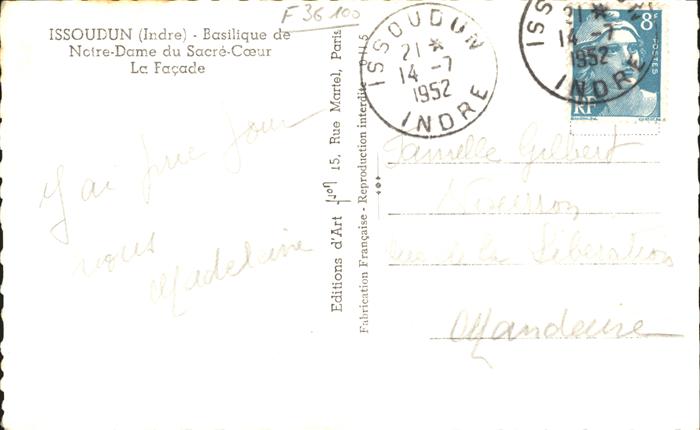 F 36 100
ISSOUDUN (Indre) - Basilique de
Notre-Dame du Sacré-Cœur
La Façade
J'ai prié pour
vous
Madeleine
Editions d'Art Yvon 15, Rue Martel, Paris
Fabrication Française - Reproduction interdite
ISSOUDUN
21 *
14 -7
1952
INDRE
ISSOUDUN
21 *
14 -7
1952
INDRE
8F
POSTES
RF
Famille Gilbert
rue de la Libération
Mandeure